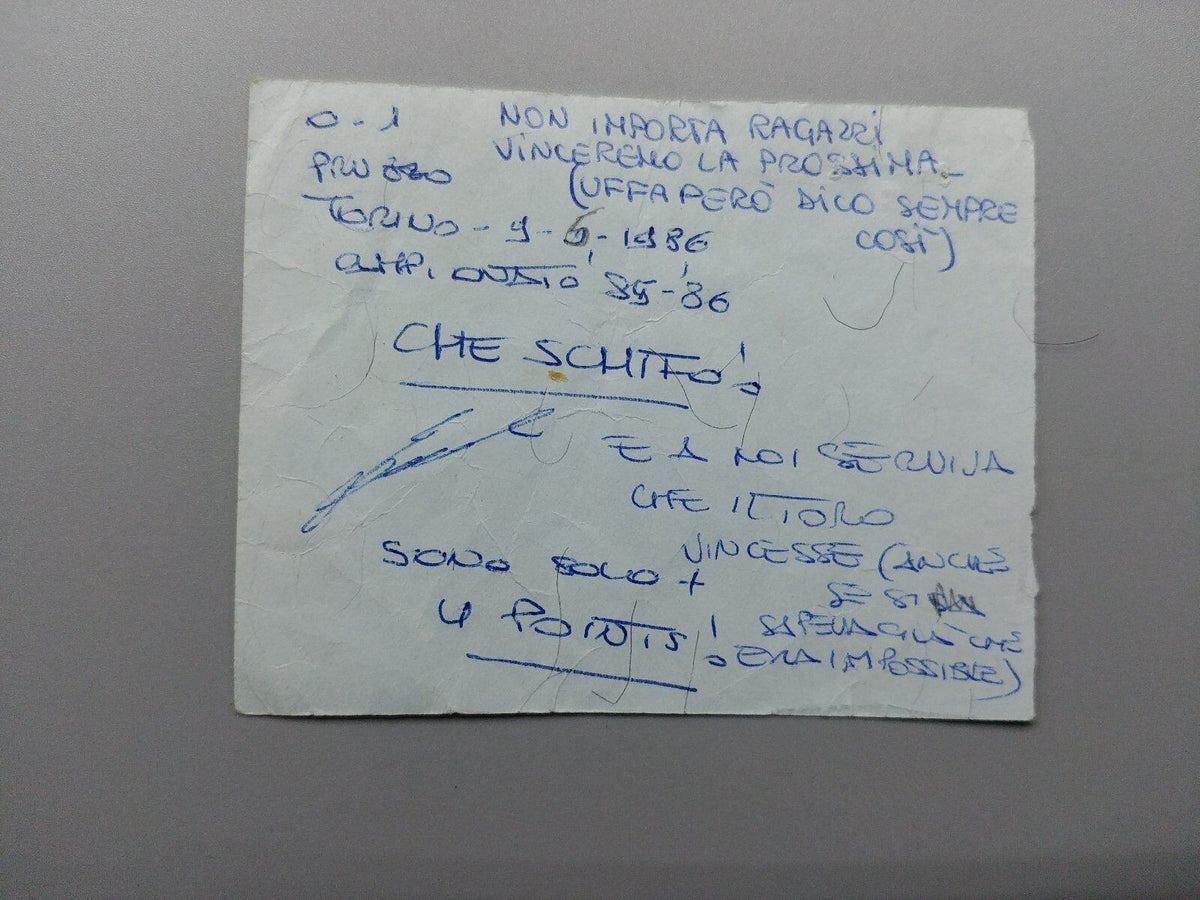 0 - 1
PRUZZO
TORINO - 9 - 6 - 1986
CAMPIONATO '85-'86
NON IMPORTA RAGAZZI
VINCEREMO LA PROSSIMA
(UFFA PERÒ DICO SEMPRE
COSÌ)
CHE SCHIFO!
E A NOI SERVIVA
CHE IL TORO
VINCESSE (ANCHE
SE SI
SAPEVA GIÀ CHE
ERA IMPOSSIBLE)
SONO SOLO +
4 POINTS!